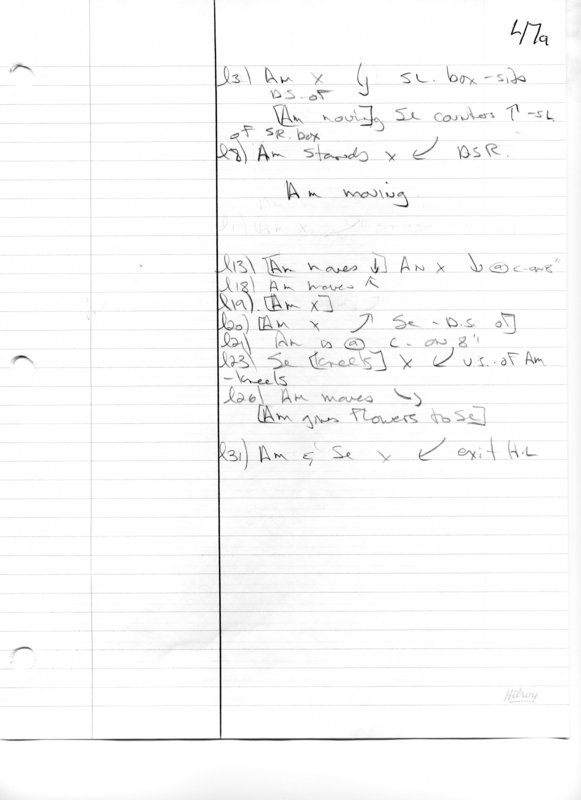 47a
l3) Am x ↳ SL. box-side
DS. of
[Am moving] Se counters ↑ -SL
of SR. box
l8) Am stands x ↙ DSR.
Am moving
l13) [Am moves ↓] AN x ↓ @ C-on 8"
l18) Am moves ↖
l19) [Am x]
l20) [Am x ↗ Se - D.S. of]
l21) Am is @ C. on 8"
l23) Se [kneels] x ↙ U.S. of Am
-kneels
l26) Am moves ↘
[Am gives flowers to Se]
l31) Am & Se x ↙ exit H.L
Hilroy